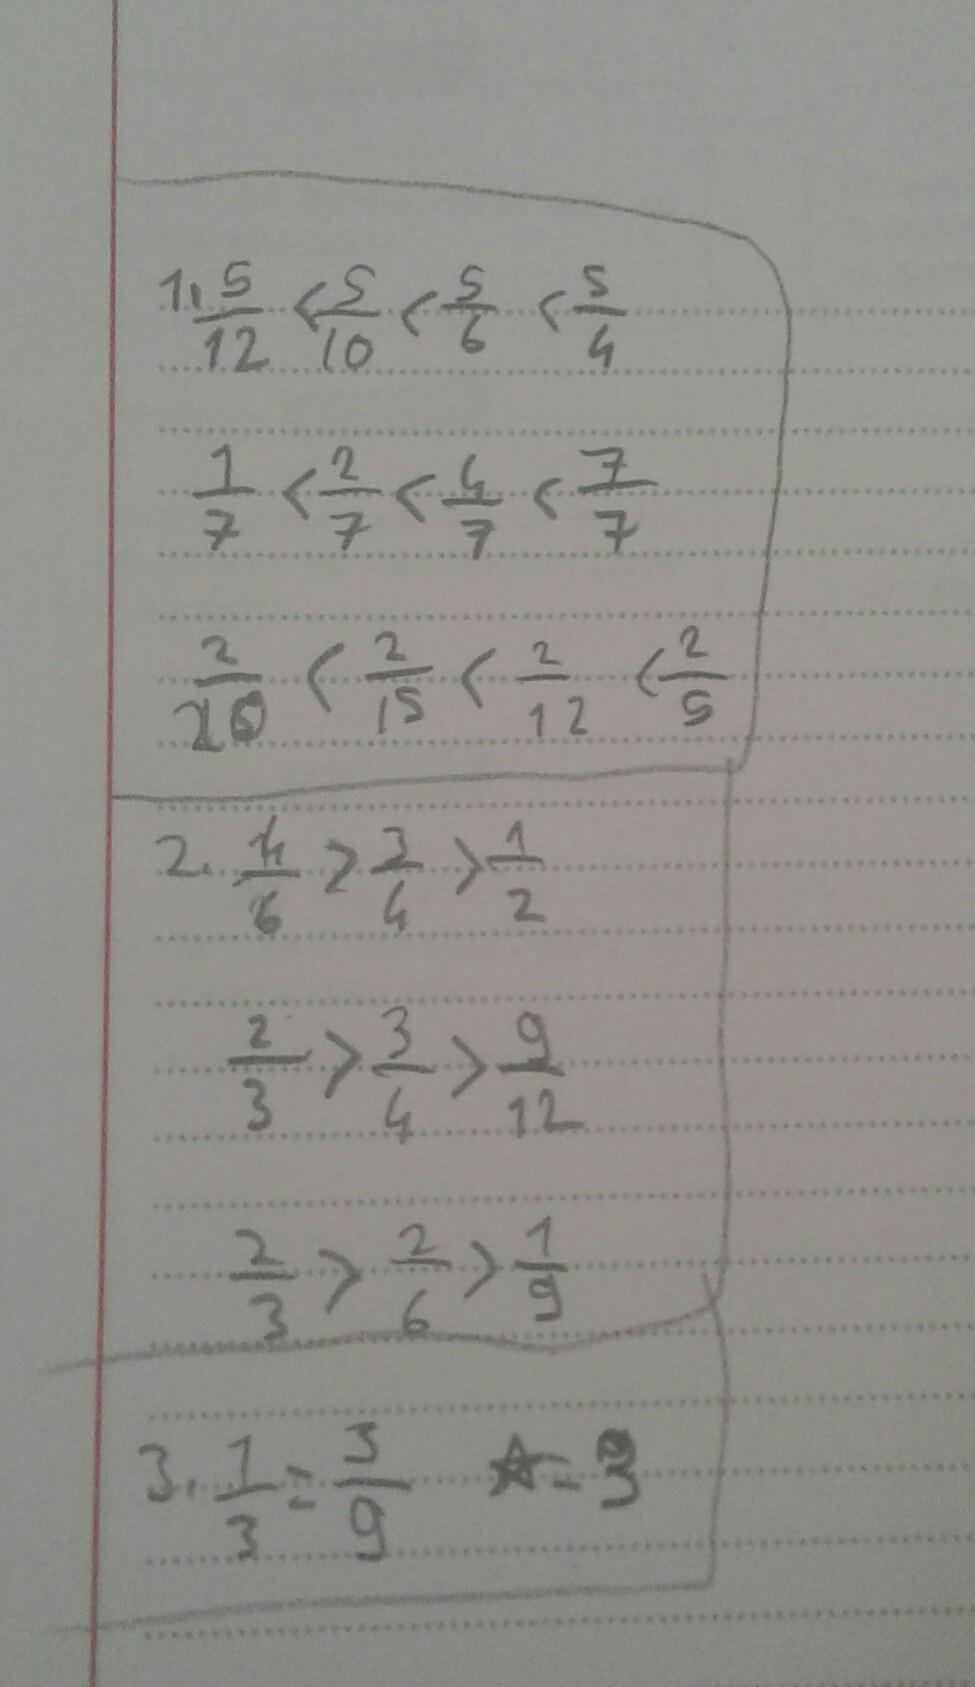 1. 5/12 < 5/10 < 5/6 < 5/4
1/7 < 2/7 < 4/7 < 7/7
2/20 < 2/15 < 2/12 < 2/5
2. 4/6 > 3/4 > 1/2
2/3 > 3/4 > 9/12
2/3 > 2/6 > 1/9
3. 1/3 = 3/9 ☆ = 3